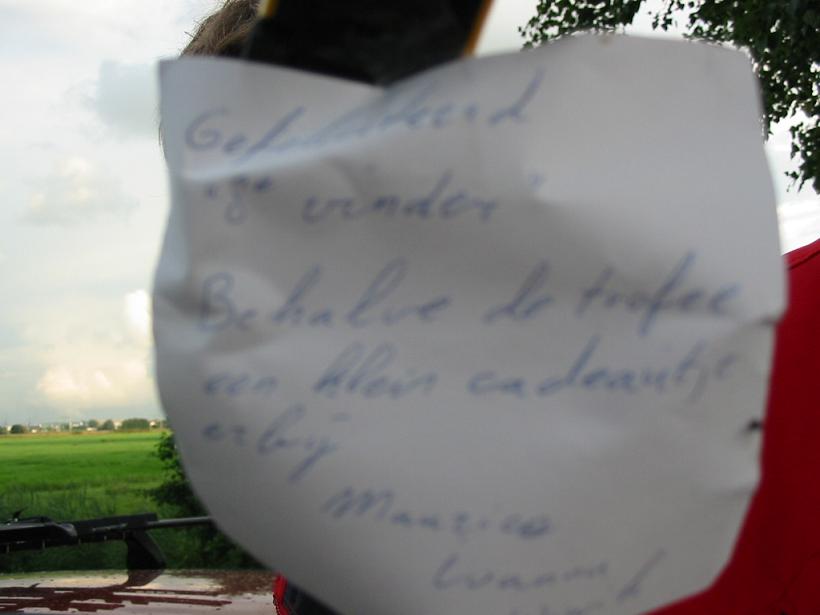 Gefeliciteerd
"1ge vinder"
Behalve de trofee
een klein cadeautje
erbij
Maurice